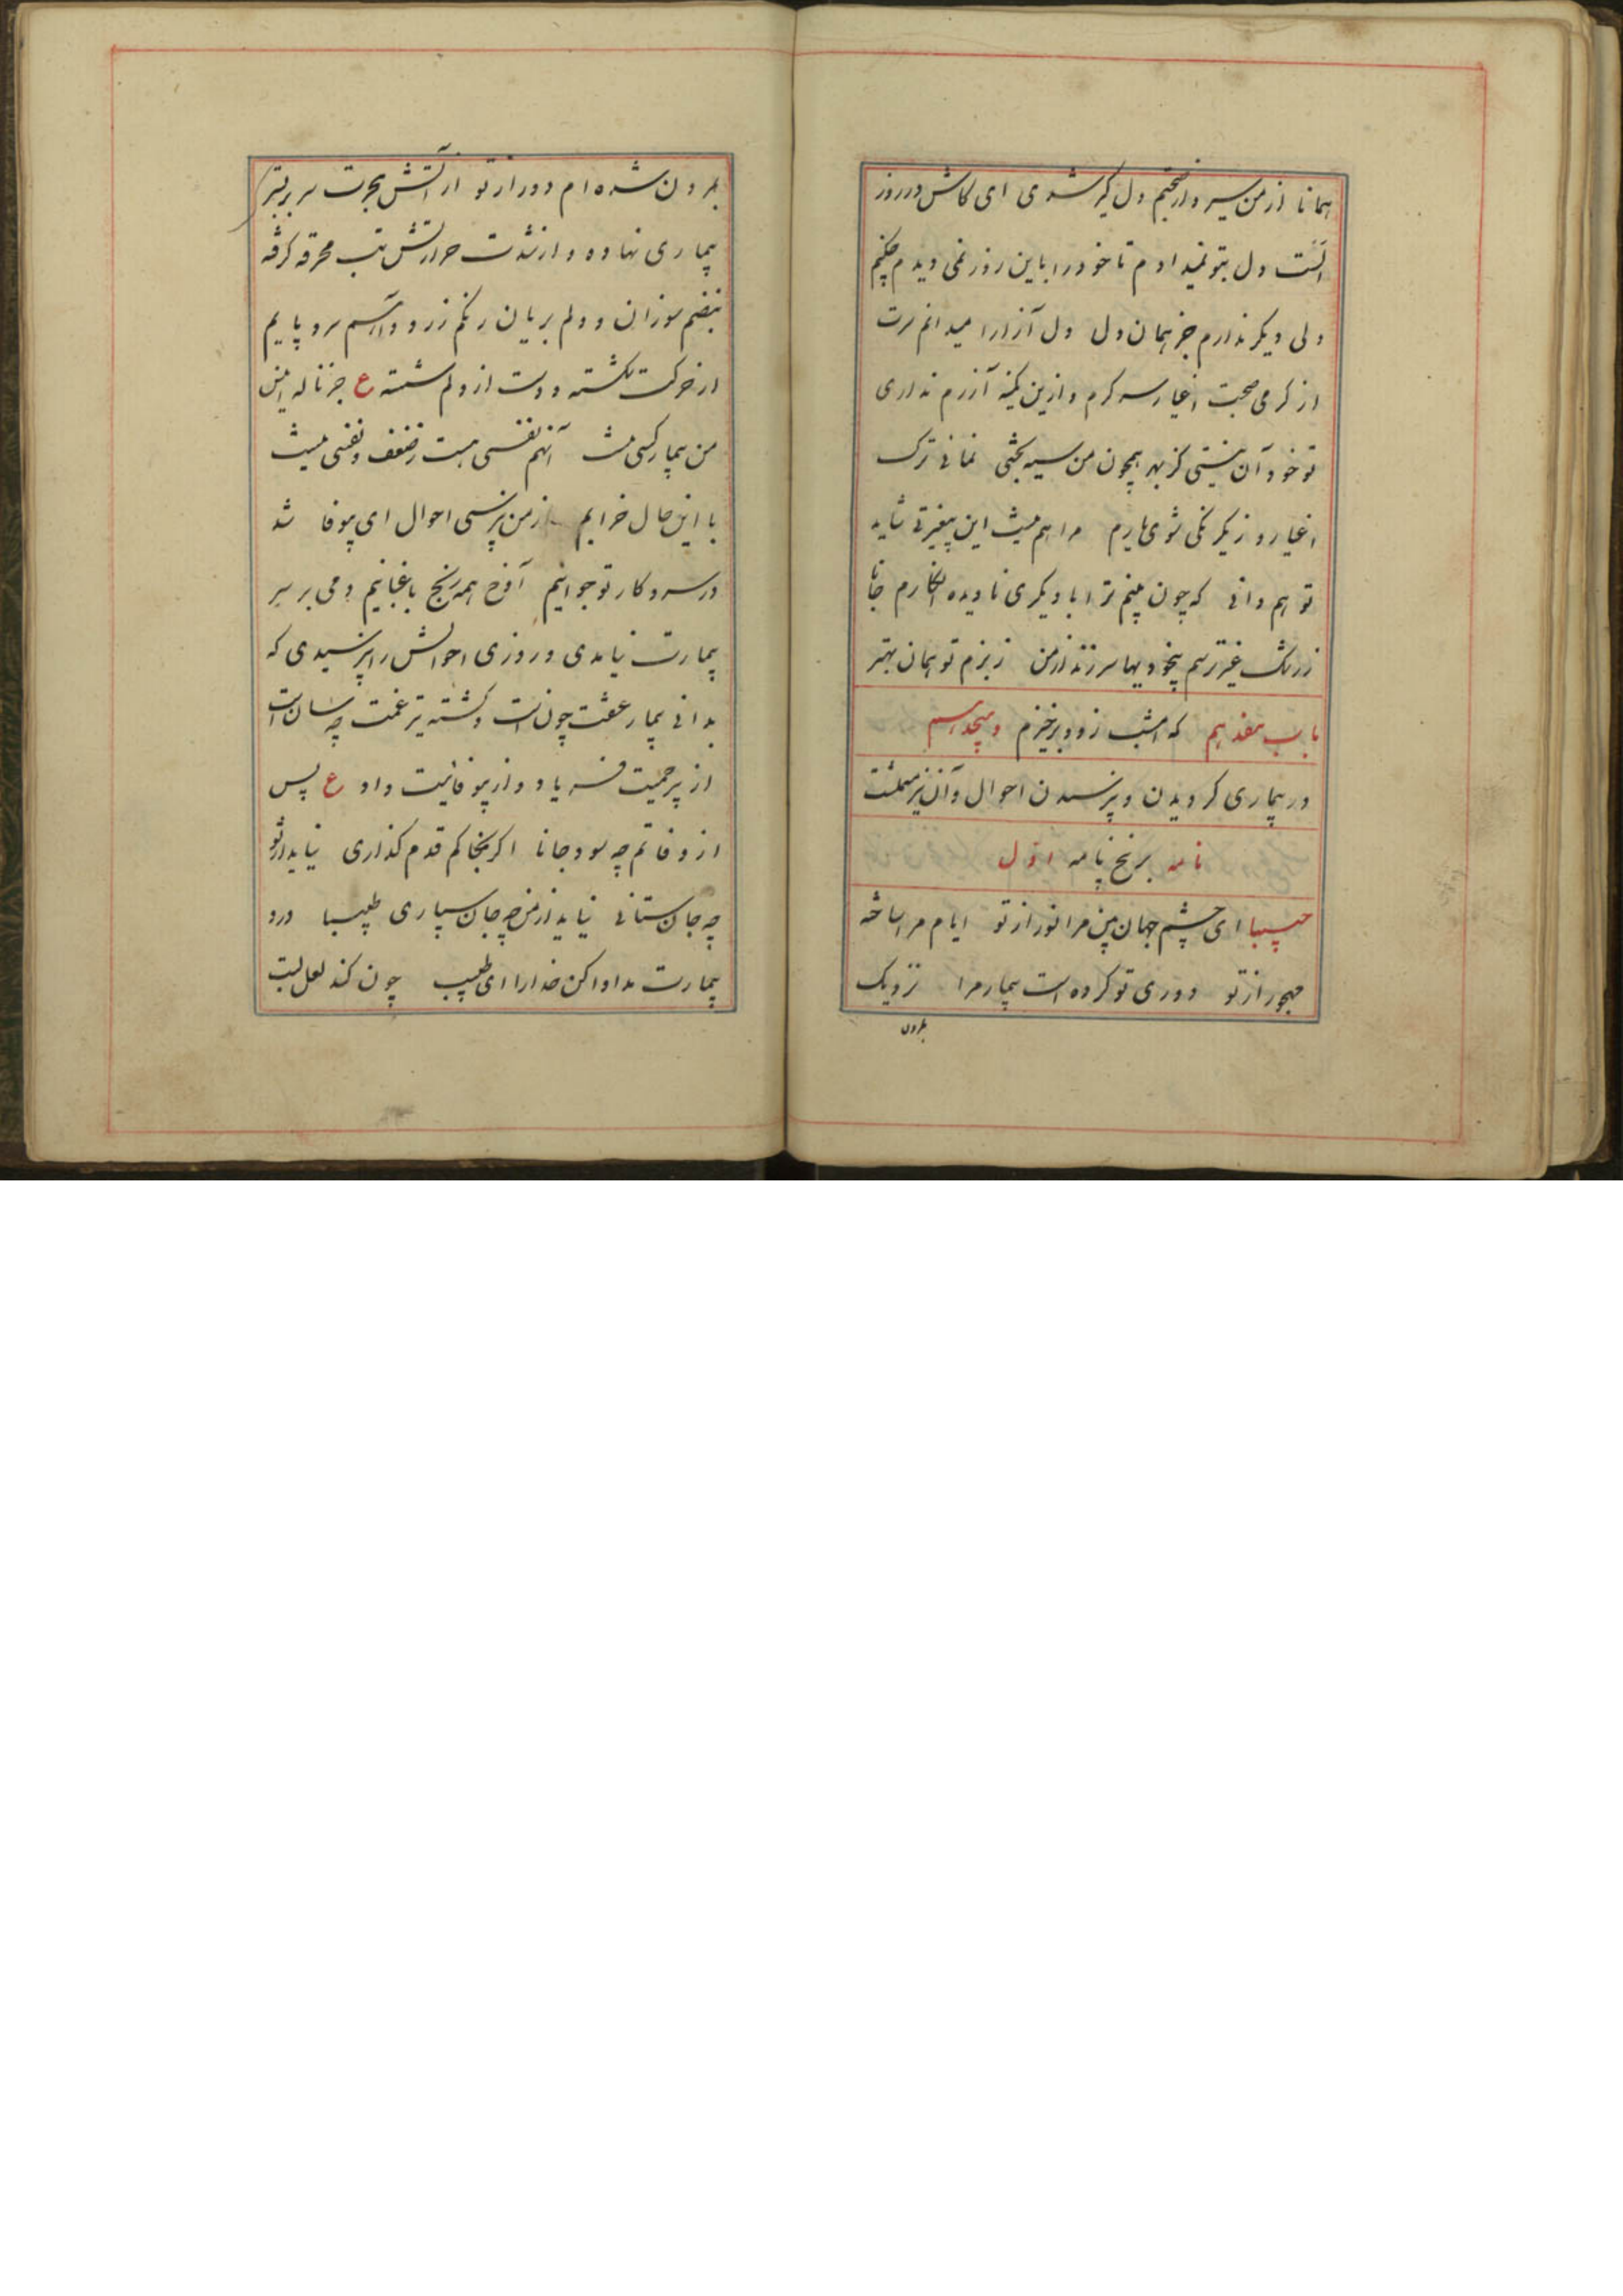 همانا از من سیر و از بختم دل گیر شوی ای کاش در روز
الست دل بتو نمیدادم تا خود را باین روز نمی دیدم چکنم
ولی دیگر ندارم جز همان دل دل آزارا میدانم سرت
از گرمی صحبت اغیار سرگرم و ازین کمینه آزرم نداری
تو خود آن نیستی کز بهر همچون من سیه بختی نمائی ترک
اغیار و ز یکرنگی شوی یارم مرا هم نیست این بیغیرتی شاید
تو هم دانی که چون بینم ترا با دیگری نادیده انگارم جانا
ز رشک غیر ترسم بیخودیها سر زند از من ز بزم تو همان بهتر
باب هفدهم که امشب زود برخیزم و هیجدهم
در بیماری گرویدن و پرسیدن احوال و آن نیز مشتملست
نامه بر پنج نامه اول
حبیبا ای چشم جهان بین مرا نور از تو ایام مرا ساخته
مهجور از تو دوری تو کرده است بیمار مرا نزدیک
بمردن
بمردن شده ام دور از تو از آتش هجرت سر بر بستر
بیماری نهاده و از شدت حرارتش تب محرقه گرفته
نبضم سوزان و دلم بریان رنگم زرد و آهم سرد پایم
از حرکت شکسته و دست از دلم شسته ع جز ناله انیس
من بیمار کسی نیست آنهم نفسی هست و ز ضعف نفسی نیست
با این حال خرابم از من نپرسی احوال ای بیوفا شد
در سر و کار تو جوانیم آوخ همه رنج باغبانیم دمی بر سر
بیمارت نیامدی و روزی احوالش را نپرسیدی که
بدانی بیمار عشقت چون است و کشته تیر غمت چه سان است
از بیرحمیت فریاد و از بیوفائیت داد ع پس
از وفاتم چه سود جانا اگر بخاکم قدم گذاری نیاید از تو
چه جان ستانی نیاید از من چه جان سپاری طبیبا درد
بیمارت مداوا کن خدا را ای طبیب چون کند لعل لبت